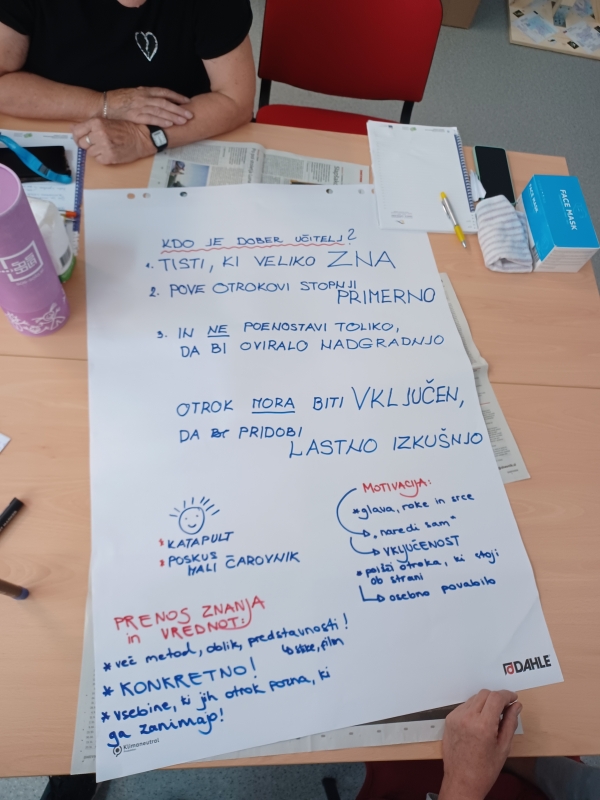 KDO JE DOBER UČITELJ?
1. TISTI, KI VELIKO ZNA
2. POVE OTROKOVI STOPNJI
PRIMERNO
3. IN NE POENOSTAVI TOLIKO,
DA BI OVIRALO NADGRADNJO
OTROK MORA BITI VKLJUČEN,
DA PRIDOBI
LASTNO IZKUŠNJO
KATAPULT
POSKUS
MALI ČAROVNIK
MOTIVACIJA:
*glava, roke in srce
"naredi sam"
VKLJUČENOST
* poišči otroka, ki stoji
ob strani
osebno povabilo
PRENOS ZNANJA
in VREDNOT:
* več metod, oblik, predstavnosti!
slike, film
* KONKRETNO!
* vsebine, ki jih otrok pozna, ki
ga zanimajo!
Klimaneutral
DAHLE
FACE MASK